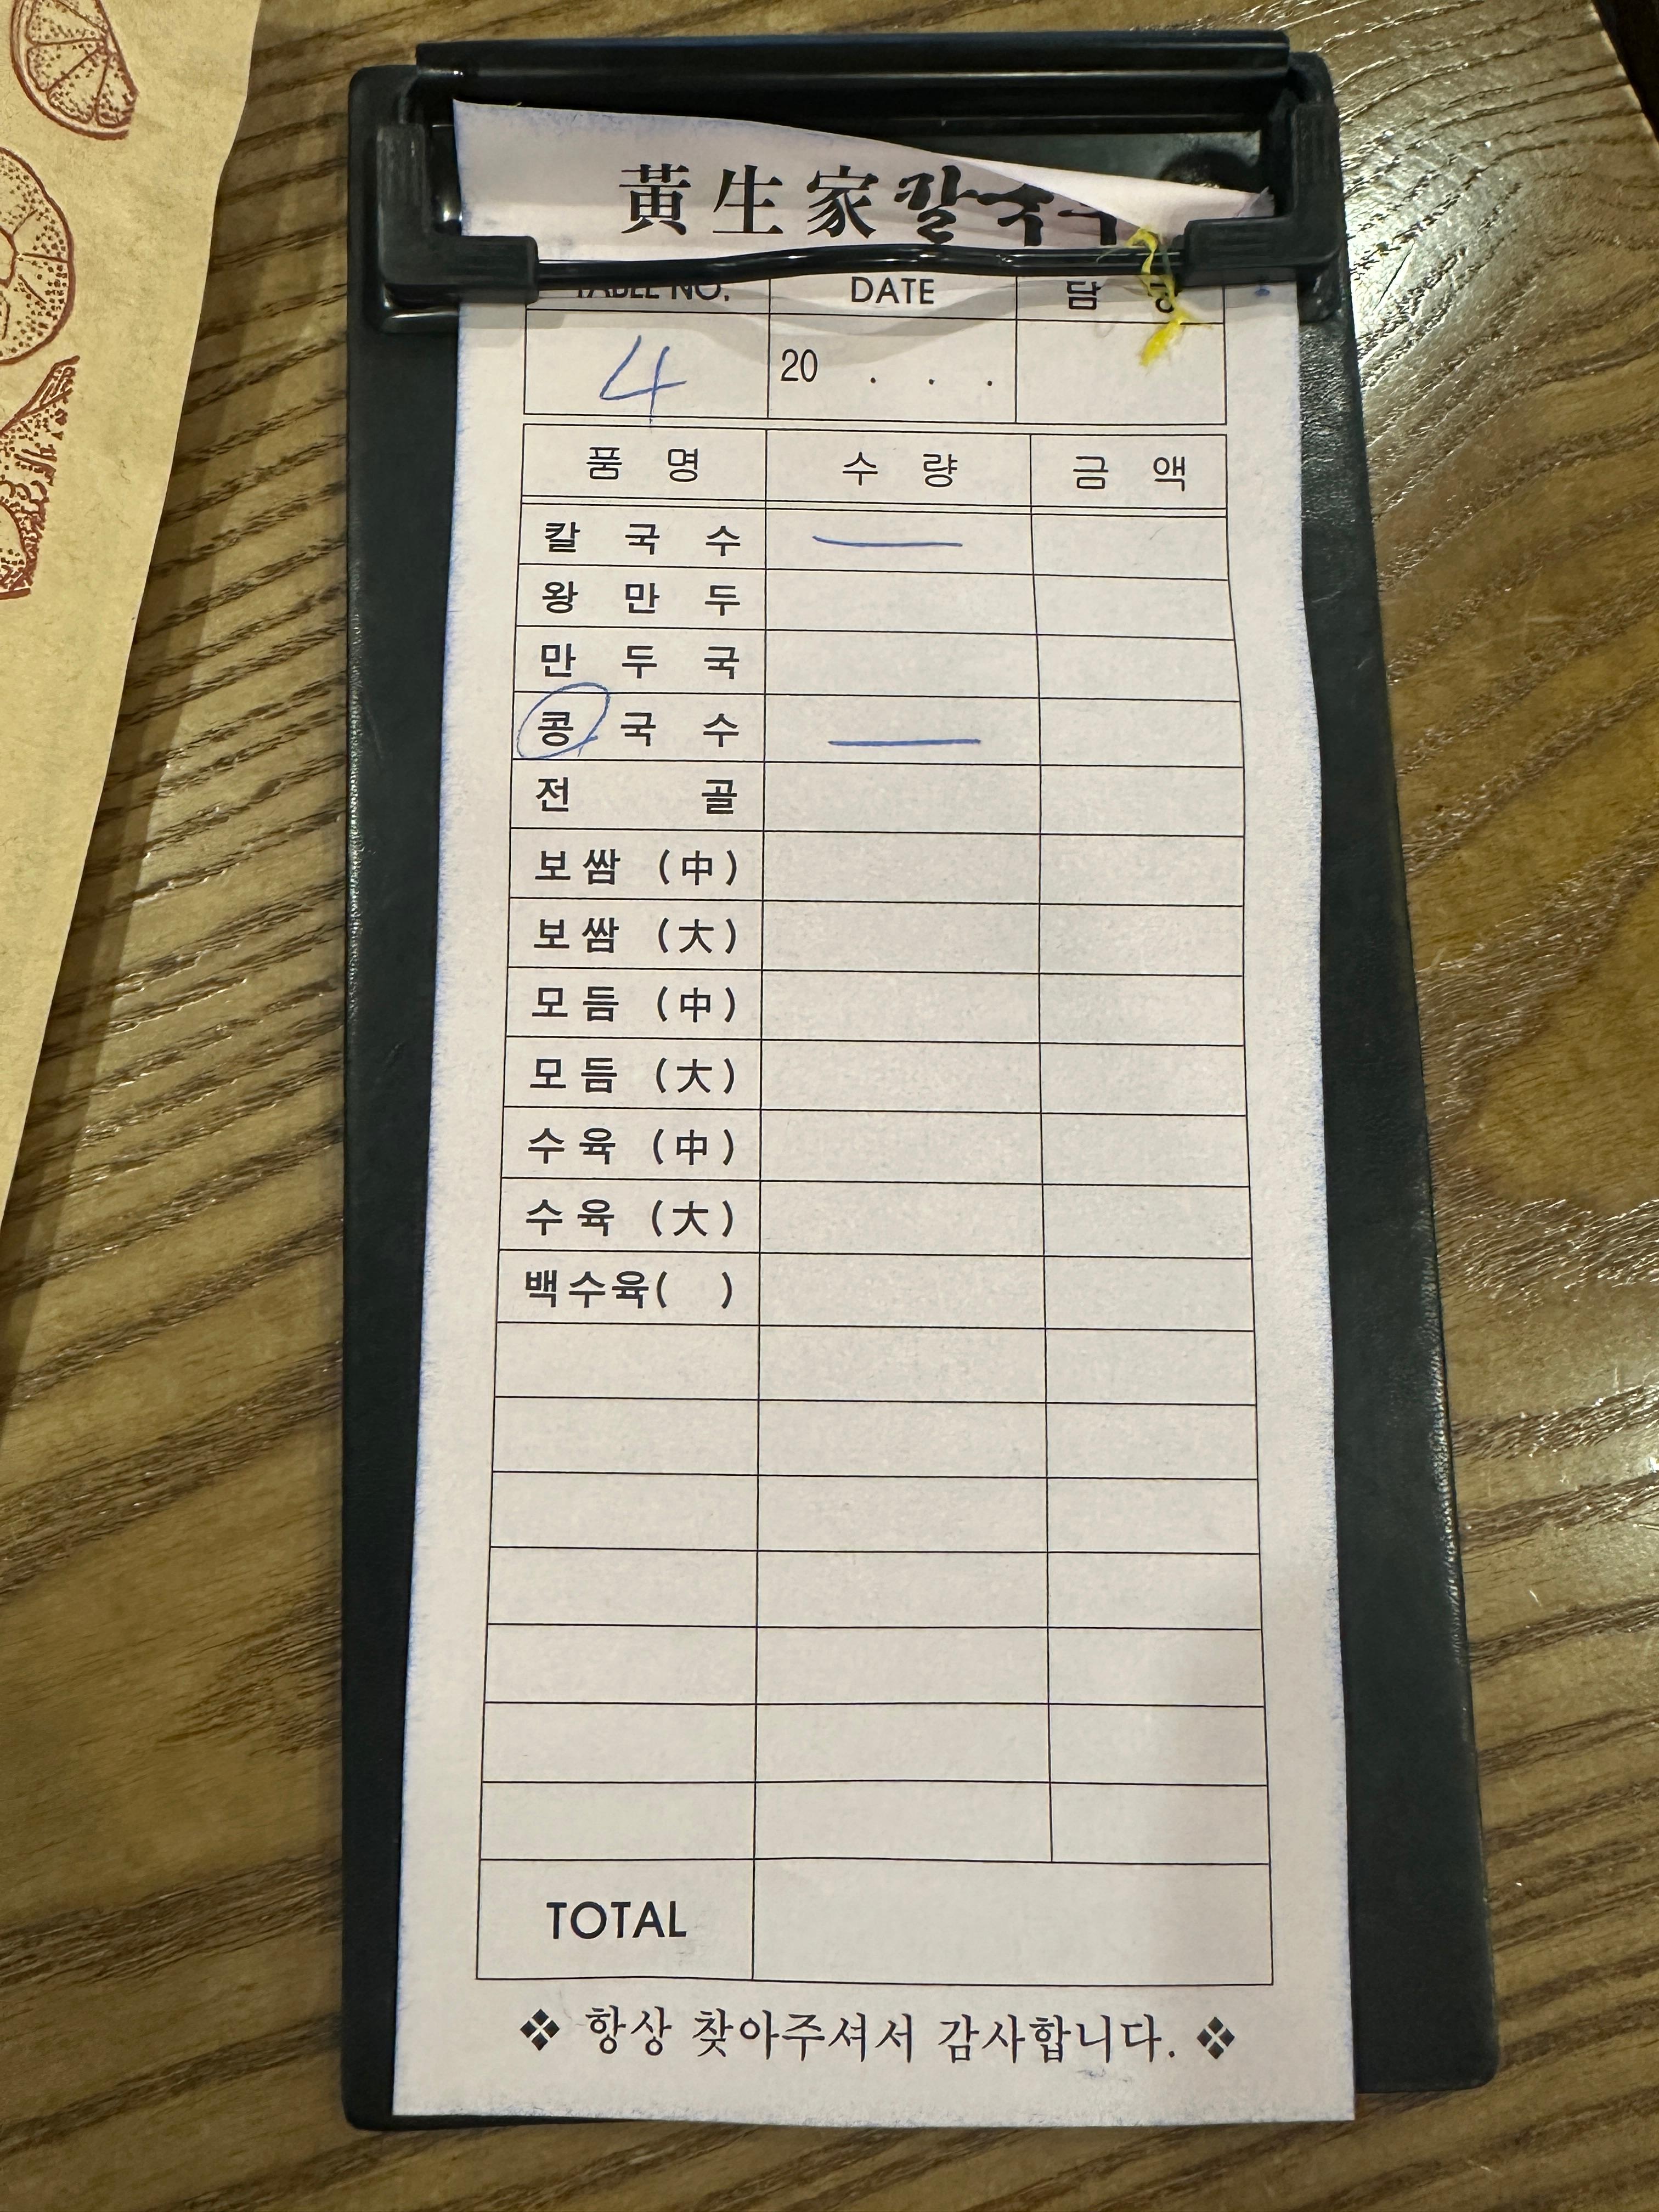 黃生家칼국수
TABLE NO. DATE 담 당
4 20 . . .
품 명 수 량 금 액
칼 국 수 —
왕 만 두
만 두 국
콩 국 수 —
전 골
보쌈 (中)
보쌈 (大)
모듬 (中)
모듬 (大)
수육 (中)
수육 (大)
백수육( )
TOTAL
❖ 항상 찾아주셔서 감사합니다. ❖